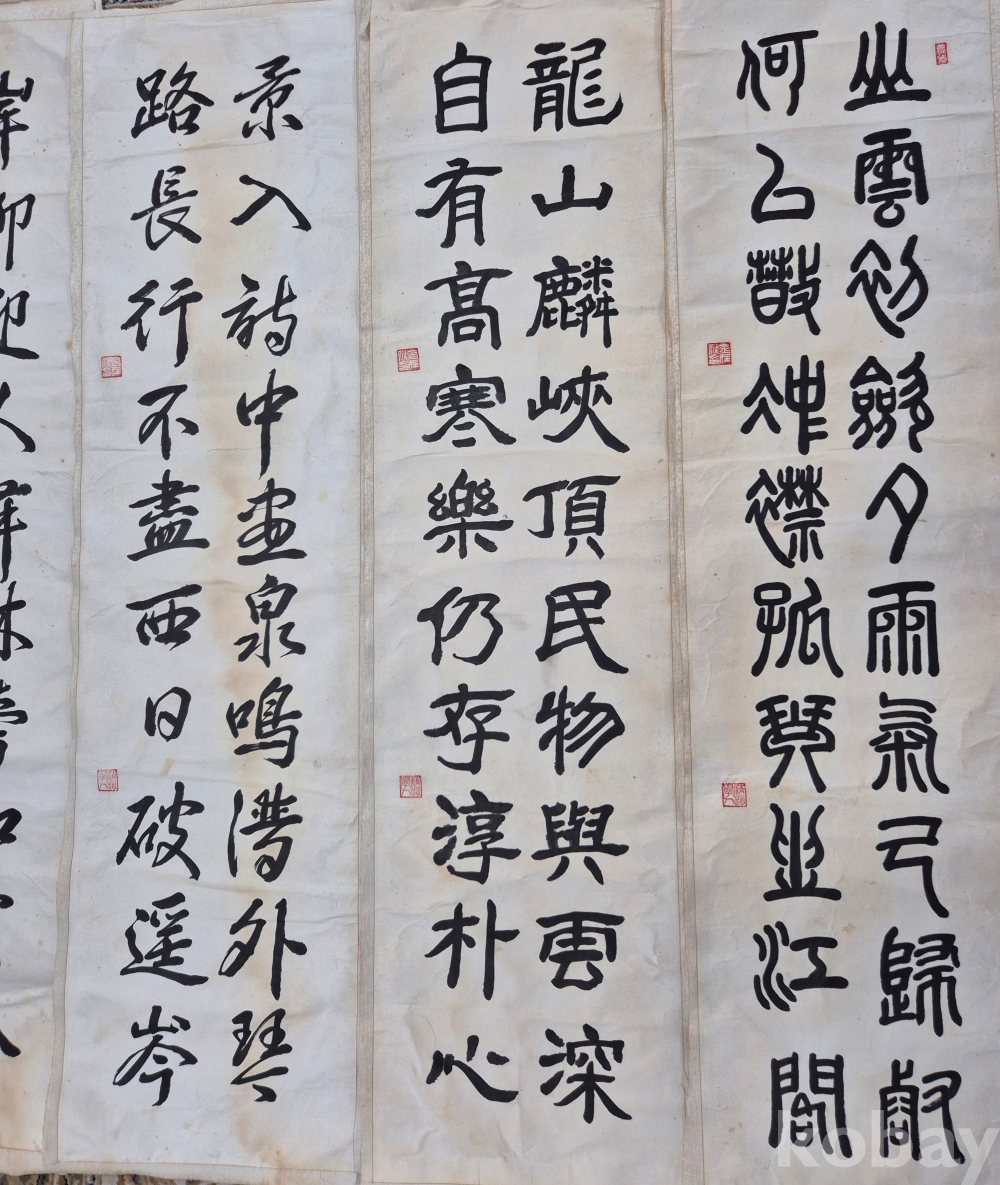 山雲初斂夕雨氣已歸壑
何以散冲襟孤琴坐江閣
龍山麟峽頂民物與雲深
自有高寒樂仍存淳朴心
景入詩中畫泉鳴譜外琴
路長行不盡西日破遥岑
岸柳迎人
kobay